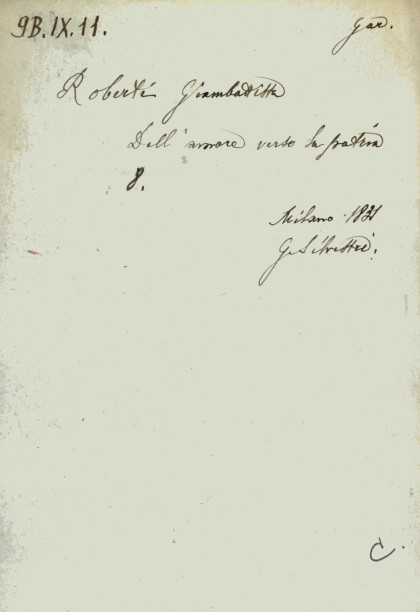 9B.IX.11.
Gar.
Roberti Giambattista
Dell'amore verso la patria
8.
Milano 1831
G. Silvestri.
C.